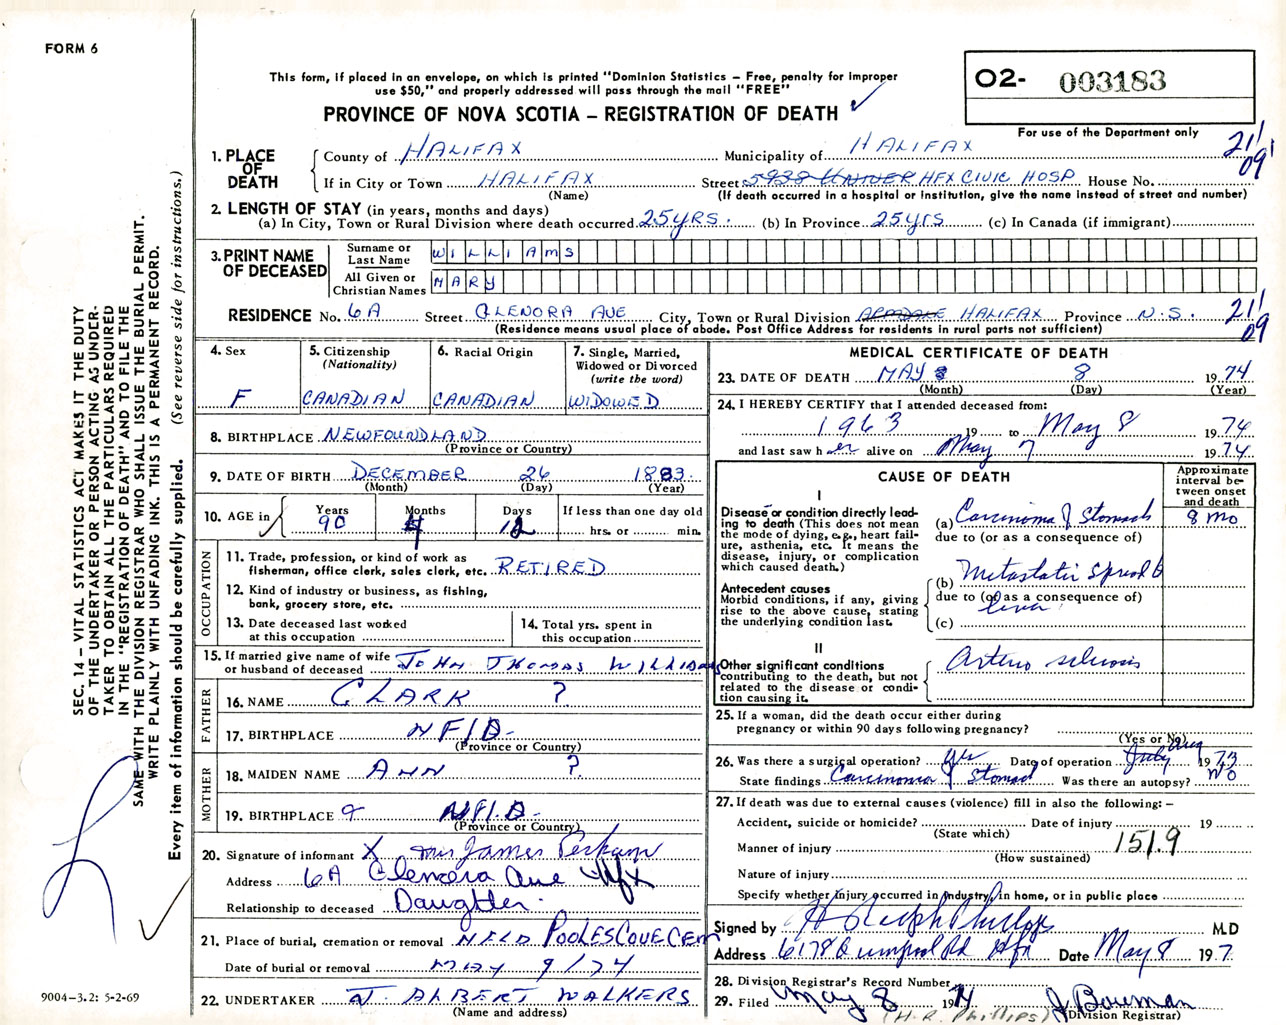 FORM 6
This form, if placed in an envelope, on which is printed "Dominion Statistics – Free, penalty for improper
use $50," and properly addressed will pass through the mail "FREE"
PROVINCE OF NOVA SCOTIA – REGISTRATION OF DEATH
O2- 003183
For use of the Department only
1. PLACE OF DEATH
County of HALIFAX Municipality of HALIFAX 21/09
If in City or Town HALIFAX Street 5938 UNIVER HFX CIVIC HOSP House No.
(Name) (If death occurred in a hospital or institution, give the name instead of street and number)
2. LENGTH OF STAY (in years, months and days)
(a) In City, Town or Rural Division where death occurred 25 YRS. (b) In Province 25 yrs (c) In Canada (if immigrant)
3. PRINT NAME OF DECEASED
Surname or Last Name WILLIAMS
All Given or Christian Names MARY
RESIDENCE No. 6A Street GLENORA AVE City, Town or Rural Division ARMDALE HALIFAX Province N.S. 21/09
(Residence means usual place of abode. Post Office Address for residents in rural parts not sufficient)
4. Sex
F
5. Citizenship
(Nationality)
CANADIAN
6. Racial Origin
CANADIAN
7. Single, Married,
Widowed or Divorced
(write the word)
WIDOWED
8. BIRTHPLACE NEWFOUNDLAND
(Province or Country)
9. DATE OF BIRTH DECEMBER 26 1883
(Month) (Day) (Year)
10. AGE in Years Months Days If less than one day old
90 4 12 hrs. or min.
OCCUPATION
11. Trade, profession, or kind of work as
fisherman, office clerk, sales clerk, etc. RETIRED
12. Kind of industry or business, as fishing,
bank, grocery store, etc.
13. Date deceased last worked
at this occupation
14. Total yrs. spent in
this occupation
15. If married give name of wife
or husband of deceased JOHN THOMAS WILLIAMS
FATHER
16. NAME CLARK ?
17. BIRTHPLACE NFLD-
(Province or Country)
MOTHER
18. MAIDEN NAME ANN ?
19. BIRTHPLACE NFLD-
(Province or Country)
20. Signature of informant X Mrs James
Address 6A Glenora Ave Hfx
Relationship to deceased Daughter.
21. Place of burial, cremation or removal NFLD POOLES COVE CEM
Date of burial or removal MAY 9/74
22. UNDERTAKER J. ALBERT WALKERS
(Name and address)
MEDICAL CERTIFICATE OF DEATH
23. DATE OF DEATH MAY 8 8 1974
(Month) (Day) (Year)
24. I HEREBY CERTIFY that I attended deceased from:
1963 19 to May 8 1974
and last saw her alive on May 7 1974
CAUSE OF DEATH
Approximate interval between onset and death
I
Disease or condition directly leading to death (This does not mean the mode of dying, e.g., heart failure, asthenia, etc. It means the disease, injury, or complication which caused death.)
(a) Carcinoma of Stomach 8 Mo
due to (or as a consequence of)
Antecedent causes
Morbid conditions, if any, giving rise to the above cause, stating the underlying condition last.
(b) Metastatic Spread to
due to (or as a consequence of)
liver
(c)
II
Other significant conditions contributing to the death, but not related to the disease or condition causing it.
Arterio sclerosis
25. If a woman, did the death occur either during
pregnancy or within 90 days following pregnancy?
(Yes or No)
26. Was there a surgical operation? yes Date of operation July Aug 1973
State findings Carcinoma of Stomach Was there an autopsy? No
27. If death was due to external causes (violence) fill in also the following: –
Accident, suicide or homicide? Date of injury 19
(State which)
Manner of injury 151.9
(How sustained)
Nature of injury
Specify whether injury occurred in industry, in home, or in public place
Signed by H Ralph Phillips M.D
Address 6178 Quinpool Rd Hfx Date May 8 197
28. Division Registrar's Record Number
29. Filed May 8 1974 J Bowman
(H.R. Phillips) (Division Registrar)
9004–3.2: 5-2-69
SEC. 14 – VITAL STATISTICS ACT MAKES IT THE DUTY
OF THE UNDERTAKER OR PERSON ACTING AS UNDER-
TAKER TO OBTAIN ALL THE PARTICULARS REQUIRED
IN THE "REGISTRATION OF DEATH" AND TO FILE THE
SAME WITH THE DIVISION REGISTRAR WHO SHALL ISSUE THE BURIAL PERMIT.
WRITE PLAINLY WITH UNFADING INK. THIS IS A PERMANENT RECORD.
Every item of information should be carefully supplied. (See reverse side for instructions.)